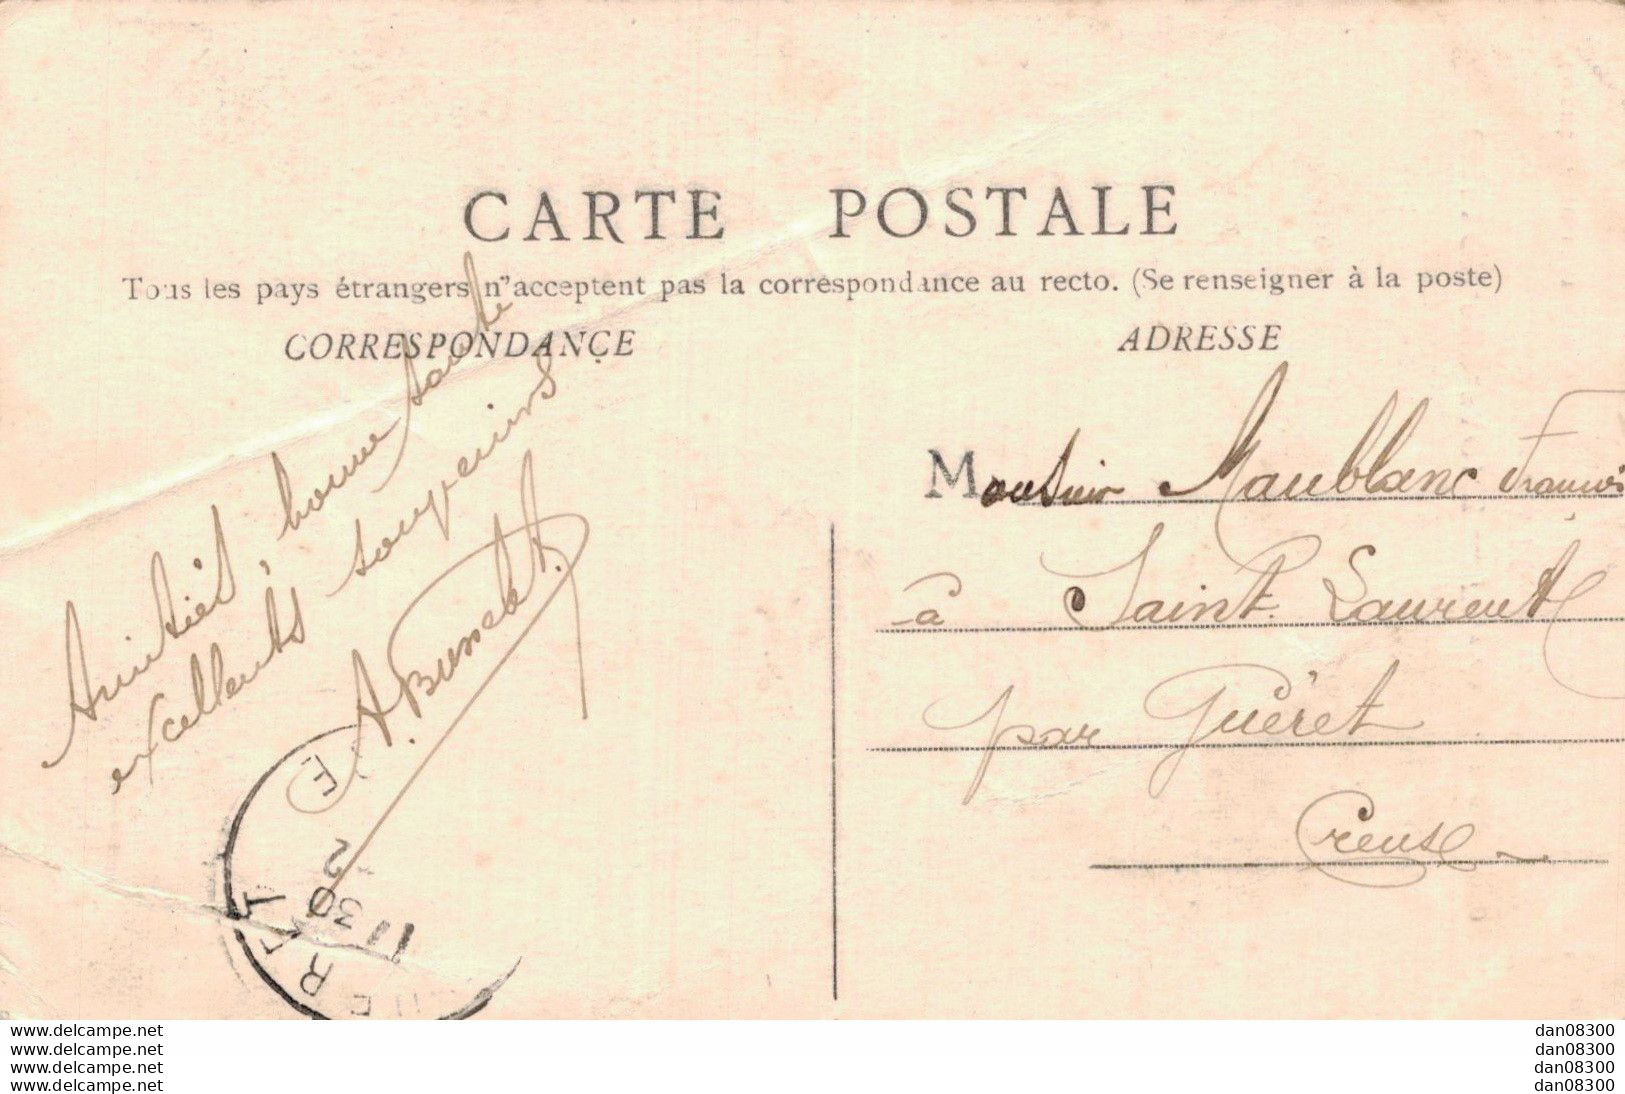 CARTE POSTALE
Tous les pays étrangers n'acceptent pas la correspondance au recto. (Se renseigner à la poste)
CORRESPONDANCE
ADRESSE
Amitiés, bonne santé
excellents souvenirs
Monsieur Maublanc
à Saint Laurent
par Guéret
Creuse
11 30
2
www.delcampe.net
www.delcampe.net
www.delcampe.net
www.delcampe.net
dan08300
dan08300
dan08300
dan08300